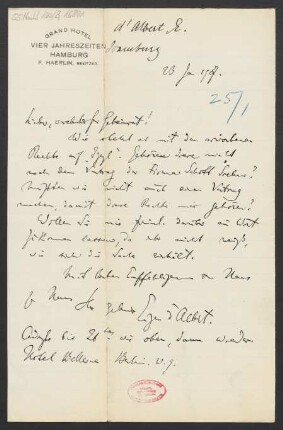 d'Albert, E.
GRAND HOTEL
VIER JAHRESZEITEN
HAMBURG
F. HAERLIN, BESITZER.
Hamburg
23 Jan
25/1
Lieber, verehrter Herr Geheimrat!
Wie steht es mit den
Rechte auf Gehören diese nicht
nach dem Vertrag der Firma Schott Söhne?
Müssten wir nicht auch einen Vertrag
machen, damit diese Rechte mir gehören?
Wollen Sie mir freundl. darüber ein Wort
zukommen lassen, da ich nicht weiss,
wie sich die Sache verhält.
Mit besten Empfehlungen von Haus
zu Haus Ihr
Eugen d'Albert.
bis 26ten wie oben, dann wieder
Hotel Bellevue Berlin. W. 9.